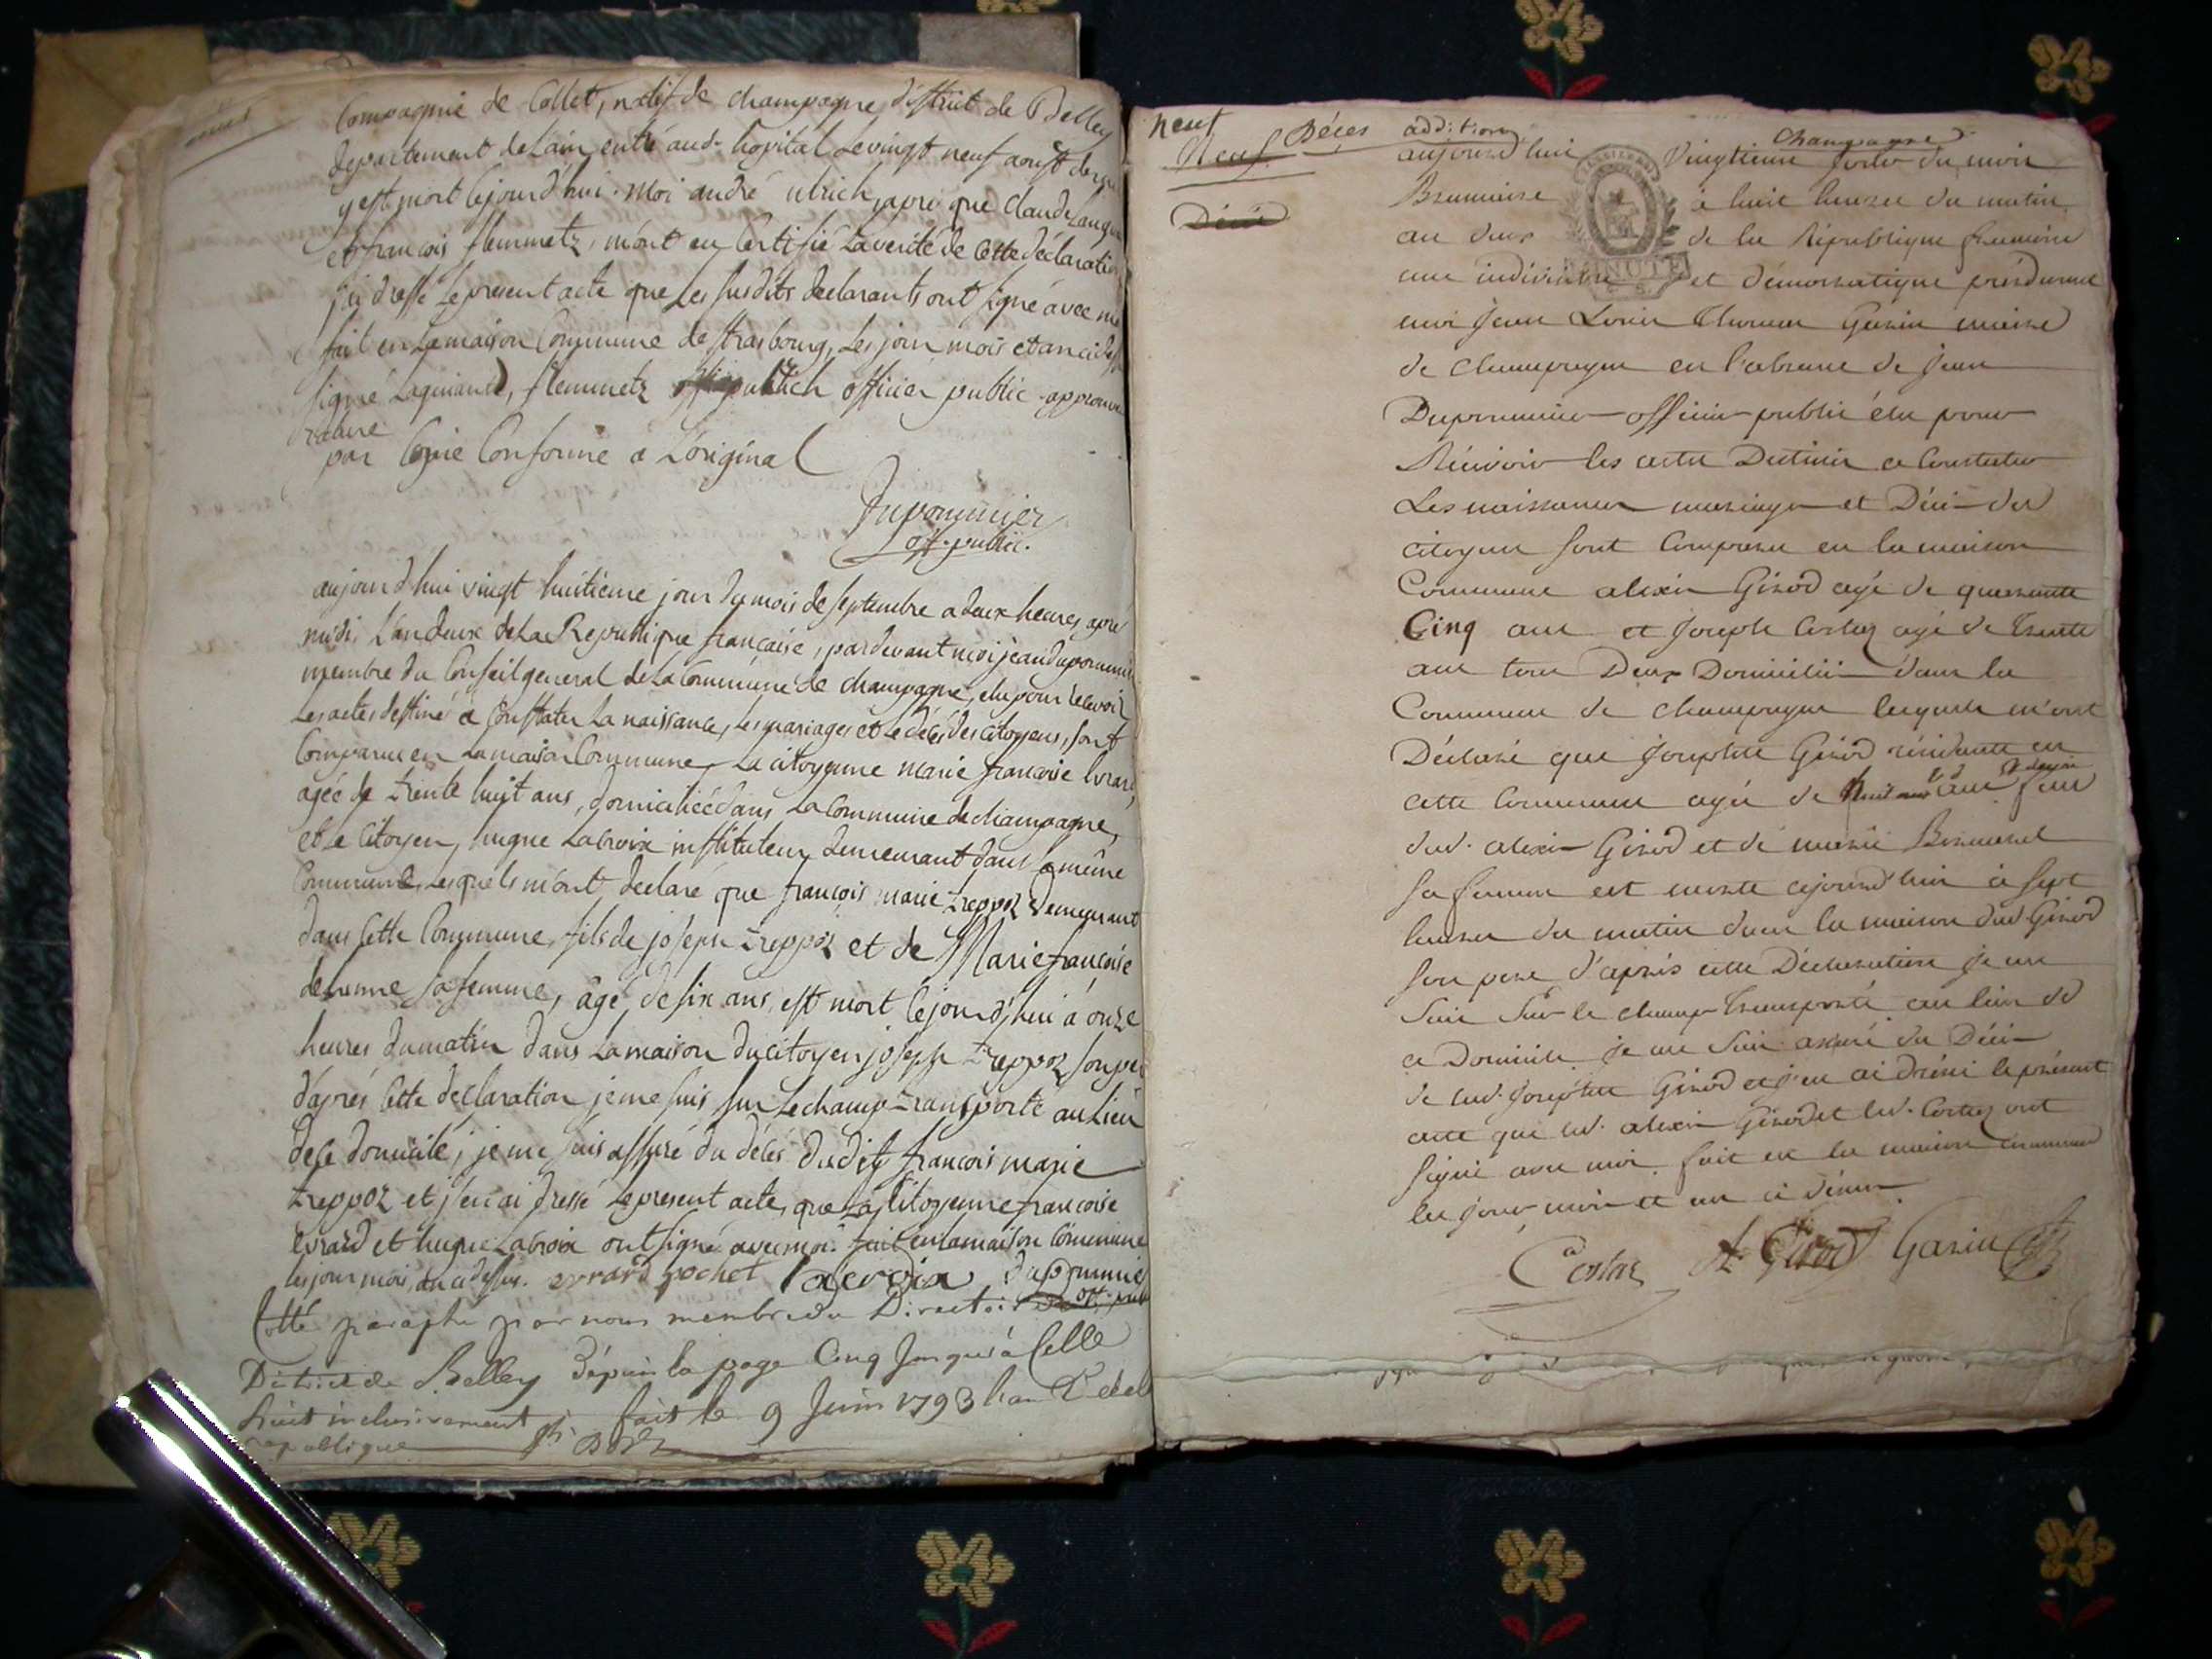 Compagnie de Collet, natif de champagne district de Belley
departement de Lain, entré aud. hopital Le vingt neuf aoust
y est mort Cejourd'hui. Moi andré ulrich, apré que Claude
et francois flemmetz, m'ont eu Certifié La verité de Cette declaration
j'ai dressé Le present acte que Les susdits declarants ont signé avec
fait en Lamaison Commune de strasbourg, Les jour mois et an
signé flemmetz officier public
rature
par Copie Conforme a L'original
Duponmier
off. public.
aujourd'hui vingt huitieme jour du mois de septembre a deux heures apré
midi, L'an deux de La Republique française, pardevant moi jean
membre du Conseil general de La Commune de champagne, elu pour recevoir
Les actes destiné a Constater La naissance, Les mariages et Le décés des Citoyens, sont
Comparu en Lamaison Commune, La citoyenne marie francoise
agée de trente huit ans, domicilieé dans La Commune de champagne,
et Le Citoyen, hugue Lacroix instituteur demeurant dans La même
Commune, Lesquels m'ont declaré que françois marie treppoz demeurant
dans Cette Commune, fils de joseph treppoz et de Marie francoise
sa femme, âgé de six ans, est mort Cejourd'hui a onze
heures du matin dans Lamaison du citoyen joseph treppoz son
d'aprés Cette declaration je me suis sur Le champ transporté au Lieu
de Ce domicile, je me suis assuré du décés dudit francois marie
treppoz et j'en ai dressé Le present acte, que La Citoyenne francoise
evrard et hugue Lacroix ont signé avec moi. fait en Lamaison Commune
Les jour mois, an ci dessus. evrard pochet Lacroix
Cotté paraphé par nous membre du Directoire
District de Belley depuis la page Cinq Jusqu'a Celle
huit inclusivement fait le 9 Juin 1793 l'an 2e de la
republique
neuf Décès addition Champagne
Neuf. aujourd'hui vingtieme jour du mois
Décés Brumaire à huit heures du matin
an deux de la République francaise
une indivisible et démocratique pardevant
moi Jean Louis Garin maire
de champagne en l'absence de Jean
Duponmier officier public élu pour
Récevoir les actes Destinés a Constater
Les naissances mariages et Décès des
citoyens sont Comparus en la maison
Commune alexis Girod agé de quarante
Cinq ans et Joseph agé de trente
ans tous Deux Domiciliés dans la
Commune de champagne lesquels m'ont
Déclaré que Josephte Girod résidante en
cette Commune agée de ans
dud. alexis Girod et de marie
sa femme est morte cejourd'hui à sept
heures du matin dans la maison dud. Girod
son pere d'après cette Déclaration je me
suis sur le champ transporté au lieu de
ce Domicile je me suis assuré du Décès
de lad. Josephte Girod et j'en ai dressé le présent
acte que led. alexis Girod et led. ont
signé avec moi fait en la maison commune
les jour mois et an ci dessus
A Girod Garin